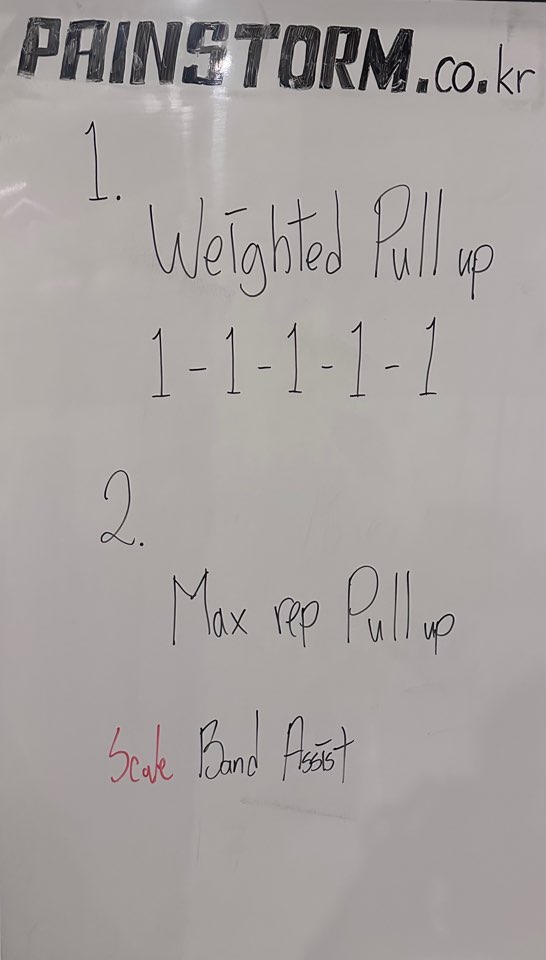 PAINSTORM.co.kr
1.
Weighted Pull up
1-1-1-1-1
2.
Max rep Pull up
Scale Band Assist